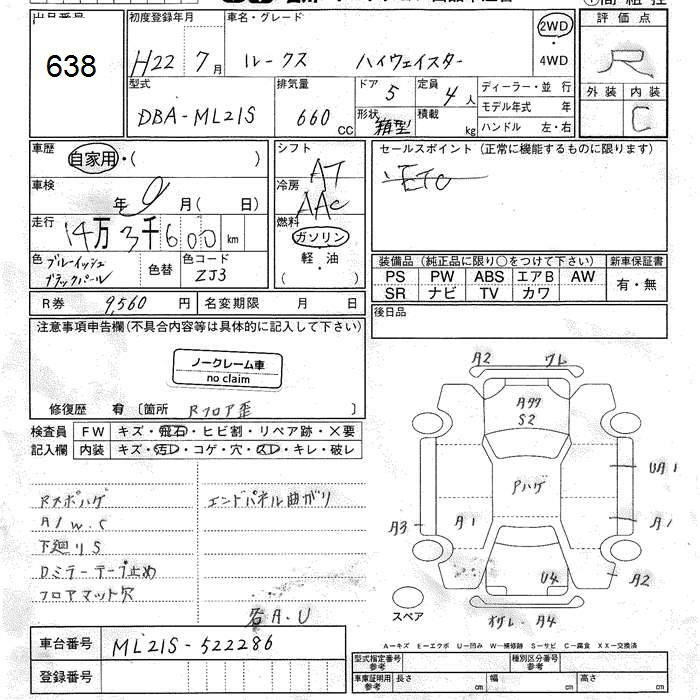 出品番号
638
初度登録年月
H22 7月
車名・グレード
ルークス ハイウェイスター
2WD
・
4WD
評価点
R
外装 内装
C
型式
DBA-ML21S
排気量
660 CC
ドア 5
形状 箱型
定員 4人
積載 kg
ディーラー・並行
モデル年式 年
ハンドル 左・右
車歴
自家用・( )
車検
年 9月( 日)
走行
14万3千600 km
色 ブルーイッシュ
ブラックパール
色替
色コード
ZJ3
シフト
AT
冷房
AAC
燃料
ガソリン
軽・油
( )
セールスポイント(正常に機能するものに限ります)
ETC
装備品(純正品に限り○をつけて下さい) 新車保証書
PS PW ABS エアB AW
SR ナビ TV カワ
有・無
R券 9,560 円 名変期限 月 日
後日品
注意事項申告欄(不具合内容等は具体的に記入して下さい)
ノークレーム車
no claim
修復歴 有 [箇所 Rフロア歪 ]
検査員 FW キズ・飛石・ヒビ割・リペア跡・×要
記入欄 内装 キズ・汚レ・コゲ・穴・スレ・キレ・破レ
Rスポハゲ
A/W.S
下廻りS
Dミラーテープ止め
フロアマット穴
エンドパネル曲がり
各A.U
A2 ワレ
Aタタ
S2
Pハゲ
UA1
A3
A1
A1
A2
U4
スペア
A4
車台番号 ML21S-522286
登録番号
A-キズ E-エクボ U-凹み W-補修跡 S-サビ C-腐食 XX-交換済
型式指定番号
参考
種別区分番号
参考
車庫証明用
参考
長さ cm 幅 cm 高さ cm